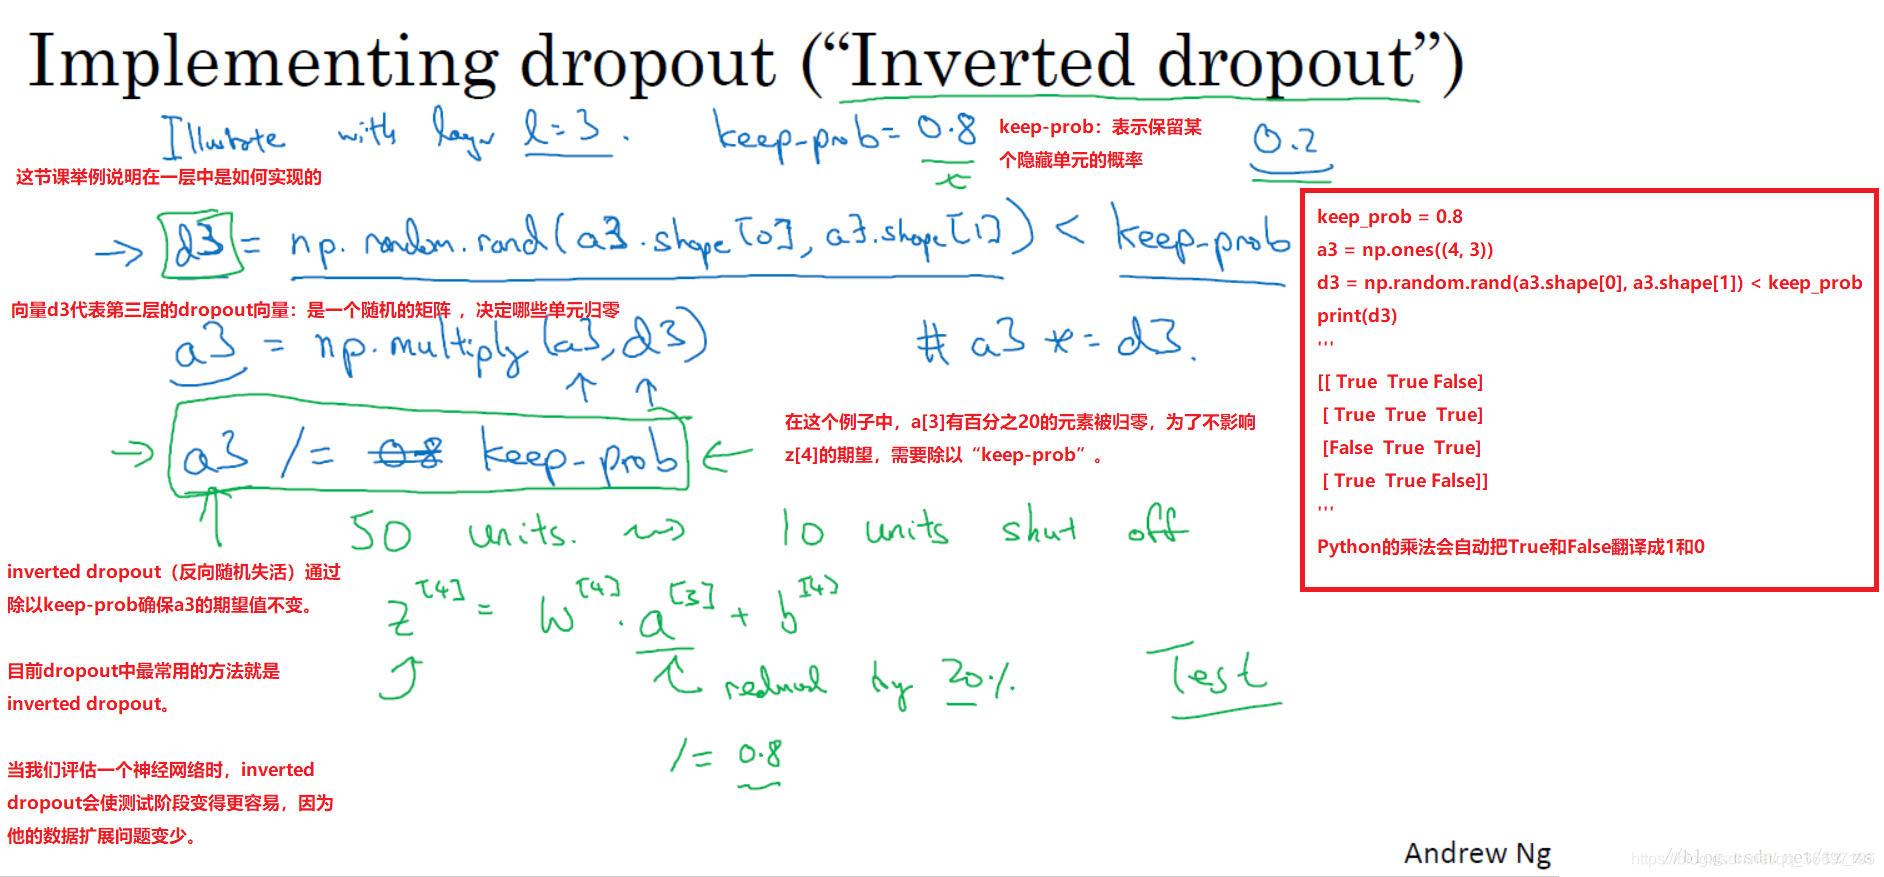 Implementing dropout (“Inverted dropout”)
Illustrate with layer l=3. keep-prob= 0.8
0.2
keep-prob：表示保留某
个隐藏单元的概率
这节课举例说明在一层中是如何实现的
→ d3 = np.random.rand(a3.shape[0], a3.shape[1]) < keep-prob
向量d3代表第三层的dropout向量：是一个随机的矩阵 ，决定哪些单元归零
a3 = np.multiply(a3, d3) # a3 *= d3.
→ a3 /= 0.8 keep-prob ←
在这个例子中，a[3]有百分之20的元素被归零，为了不影响
z[4]的期望，需要除以“keep-prob”。
50 units. 10 units shut off
inverted dropout（反向随机失活）通过
除以keep-prob确保a3的期望值不变。
z[4] = W[4] . a[3] + b[4]
reduced by 20%.
Test
/= 0.8
目前dropout中最常用的方法就是
inverted dropout。
当我们评估一个神经网络时，inverted
dropout会使测试阶段变得更容易，因为
他的数据扩展问题变少。
keep_prob = 0.8
a3 = np.ones((4, 3))
d3 = np.random.rand(a3.shape[0], a3.shape[1]) < keep_prob
print(d3)
'''
[[ True  True False]
[ True  True  True]
[False  True  True]
[ True  True False]]
'''
Python的乘法会自动把True和False翻译成1和0
Andrew Ng